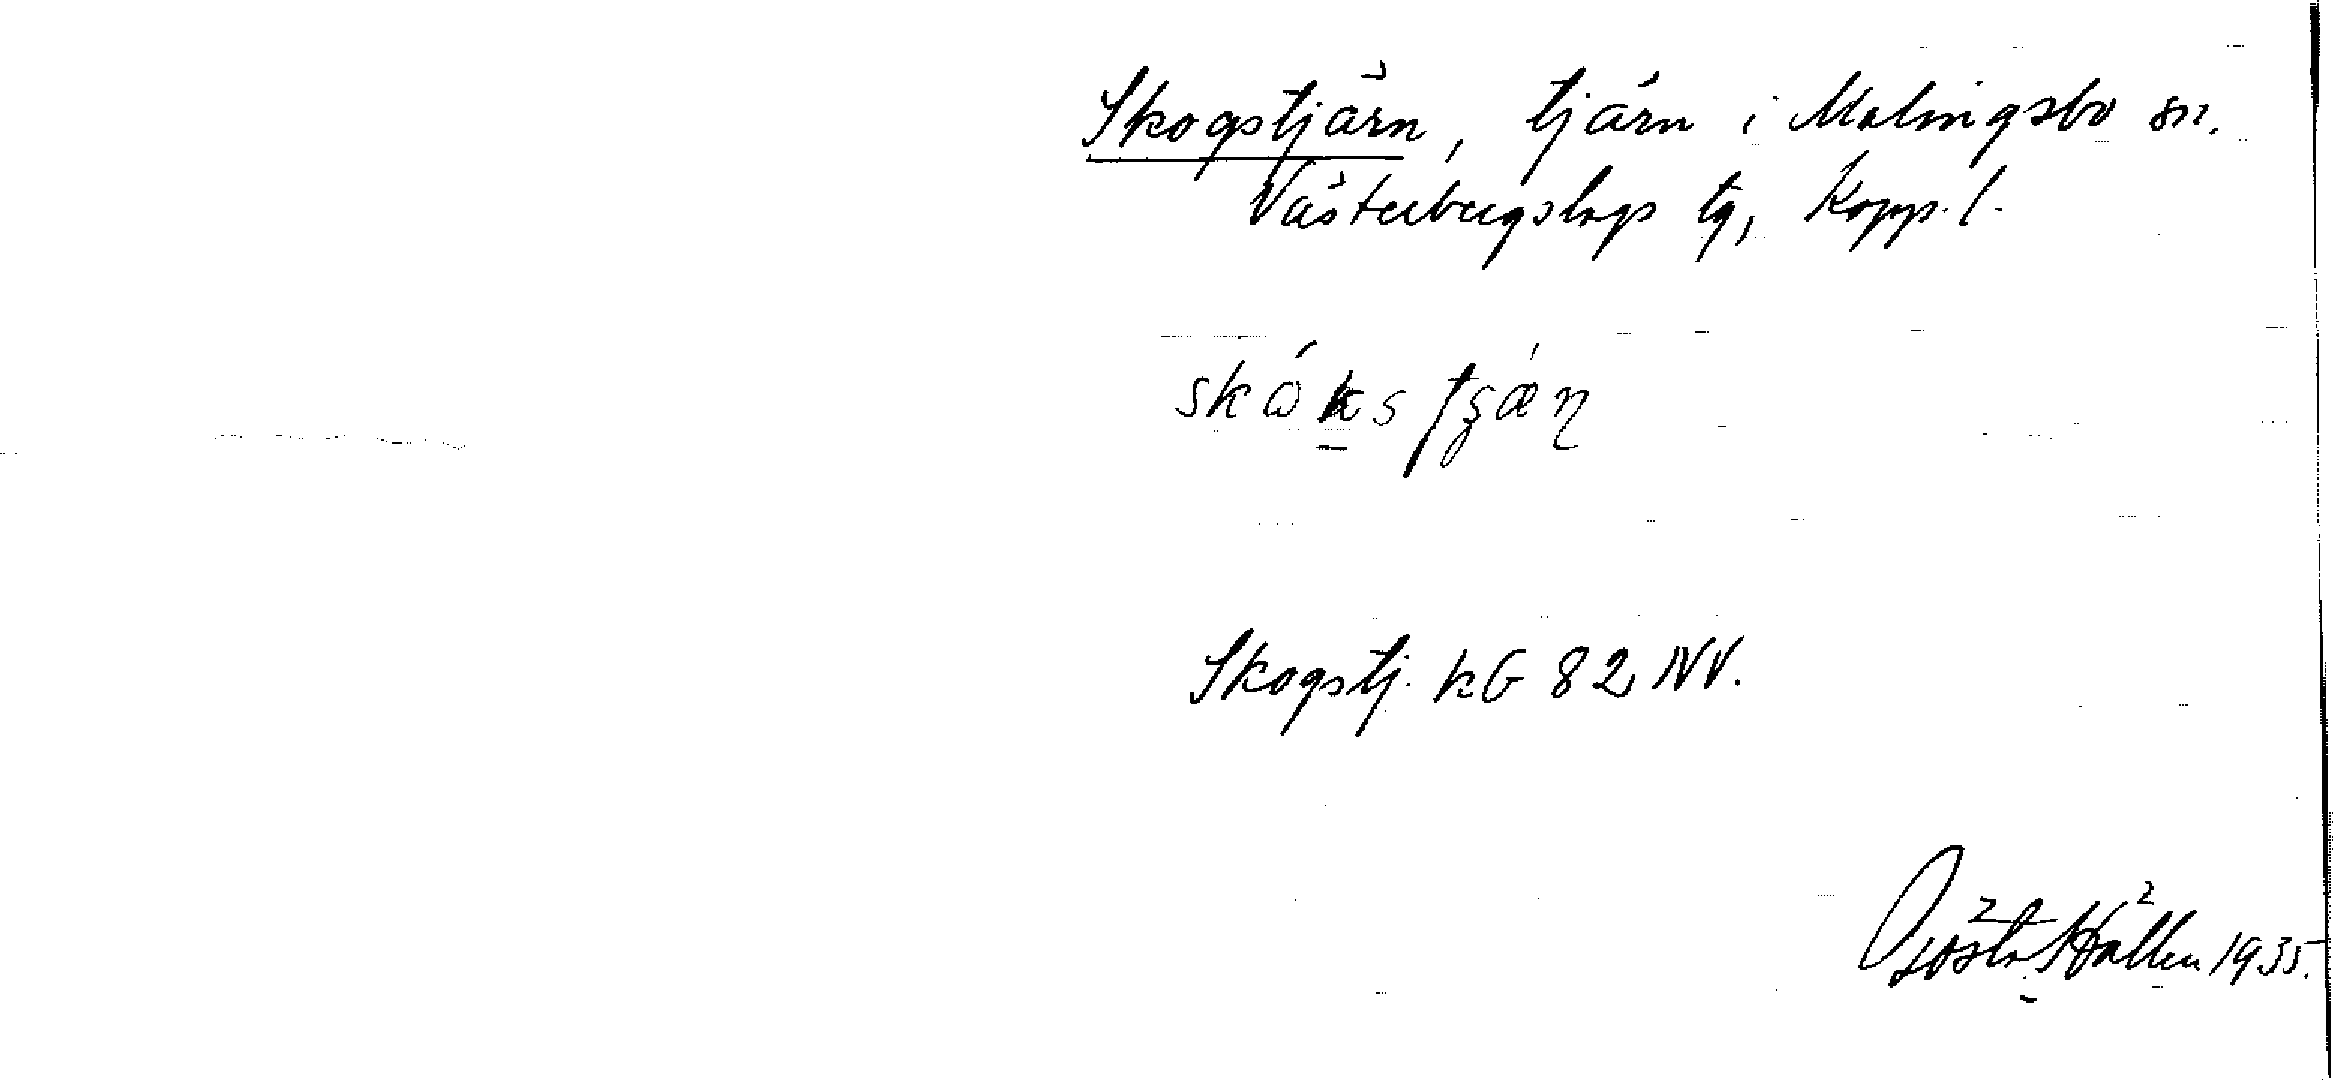 Skogstjärn, tjärn i Malingsbo sn.
Västerbergslags tg, Kopp. l.
Skogstj. kG 82 NV.
Gösta Hällen 1935.